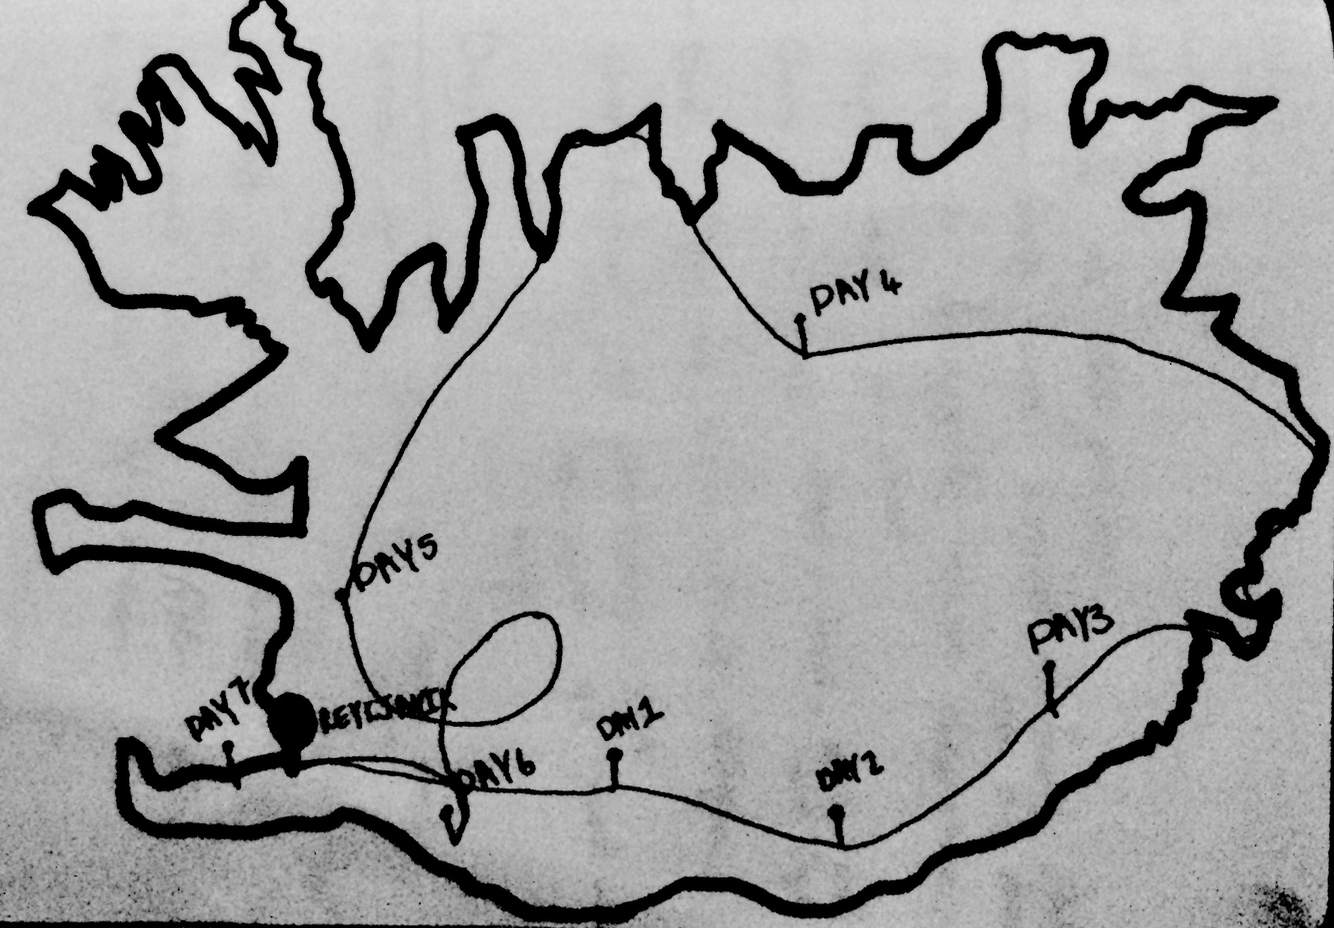 DAY 4
DAY5
DAY3
DAY 7
REYKJAVIK
DAY1
DAY6
DAY2